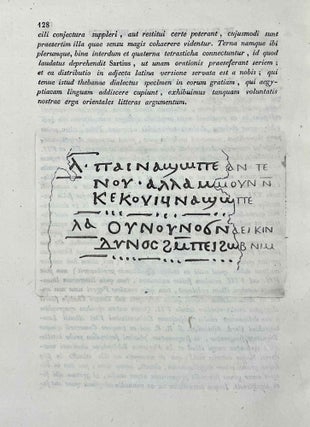 128
cili conjectura suppleri, aut restitui certe poterant, cujusmodi sunt
praesertim illa quae sensu magis cohaerere videntur. Terna namque ibi
plerumque, bina interdum et quaterna tetrasticha connectuntur, id quod
laudatus deprehendit Sartius, ut unam orationis praeseferant seriem;
et ea distributio in adjecta latina versione servata est a nobis; qui
tenue istud thebanae dialectus specimen in eorum gratiam, qui aegy-
ptiacam linguam addiscere cupiunt, exhibuimus tanquam voluntatis
nostrae erga orientales litteras argumentum.
ⲗ · ⲡⲁⲓⲛⲁϣⲱⲡⲉ ⲁⲛ ⲧⲉ
ⲛⲟⲩ · ⲁⲗⲗⲁ ⲙⲙⲟⲩⲛ ⲛ
ⲕⲉⲕⲟⲩⲓϥⲛⲁϣⲱⲡⲉ
ⲗⲁ ⲟⲩⲛⲟⲩⲛⲟϭⲛ ⲇⲉⲓⲕⲓⲛ
ⲇⲩⲛⲟⲥ ϩⲙⲡⲉⲓϩⲱⲃ ⲛⲓⲙ